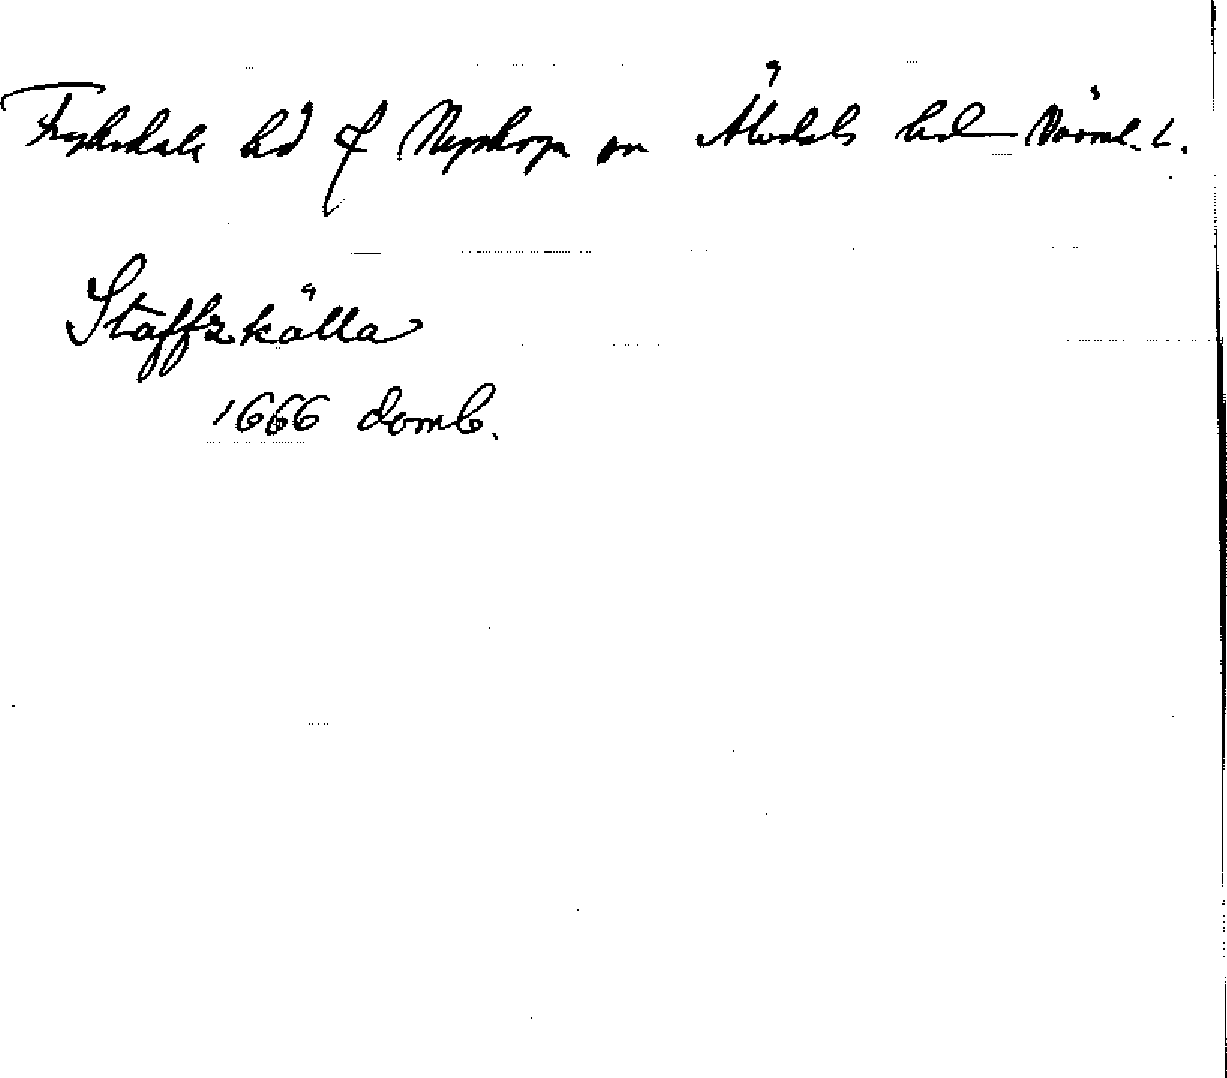 Fryksdals hd f Nyskoga sn Älvdals hd Värml. l.
Staffzkälla
1666 domb.